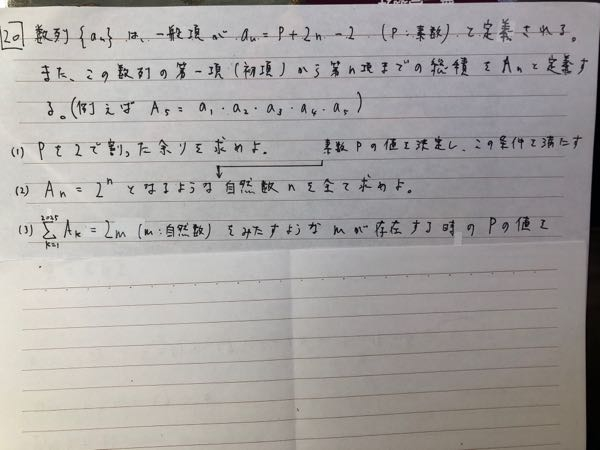 20 数列{an}は、一般項が an = P + 2n - 2 (P:素数) と定義される。
また、この数列の第一項(初項)から第n項までの総積をAnと定義す
る。(例えば A5 = a1・a2・a3・a4・a5)
(1) Pを2で割った余りを求めよ。 素数Pの値を決定し、この条件を満たす
(2) An = 2^n となるような自然数nを全て求めよ。
(3) 2025Σk=1 Ak = 2m (m:自然数) をみたすようなmが存在する時のPの値を